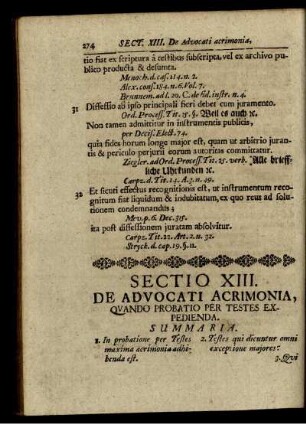 274 SECT. XIII. De Advocati acrimonia,
tio fiat ex scriptura á testibus subscripta, vel ex archivo pu-
blico producta & desumta.
Menoch. d. cas. 114. n. 2.
Alex. cons. 184. n. 6. Vol. 7.
Brunnem. ad l. 20. C. de fid. instr. n. 4.
31 Diffessio ab ipso principali fieri debet cum juramento.
Ord. Process. Tit. 25. §. Weil es auch ꝛc.
Non tamen admittitur in instrumentis publicis,
per Decis. Elect. 74.
quia fides horum longè major est, quam ut arbitrio juran-
tis & periculo perjurii eorum autoritas committatur.
Ziegler. ad Ord. Process. Tit. 25. verb. Alle brieff-
liche Uhrkunden ꝛc.
Carpz. d. Tit. 14. A. 3. n. 49.
32 Et sicuti effectus recognitionis est, ut instrumentum reco-
gnitum fiat liquidum & indubitatum, ex quo reus ad solu-
tionem condemnandus;
Mev. p. 6. Dec. 315.
ita post diffessionem juratam absolvitur.
Carpz. Tit. 12. Art. 2. n. 32.
Stryck. d. cap. 19. §. 12.
SECTIO XIII.
DE ADVOCATI ACRIMONIA,
QVANDO PROBATIO PER TESTES EX-
PEDIENDA.
SUMMARIA.
1. In probatione per Testes maxima acrimonia adhi-benda est.
2. Testes qui dicuntur omni exceptione majores?
3. Qvi